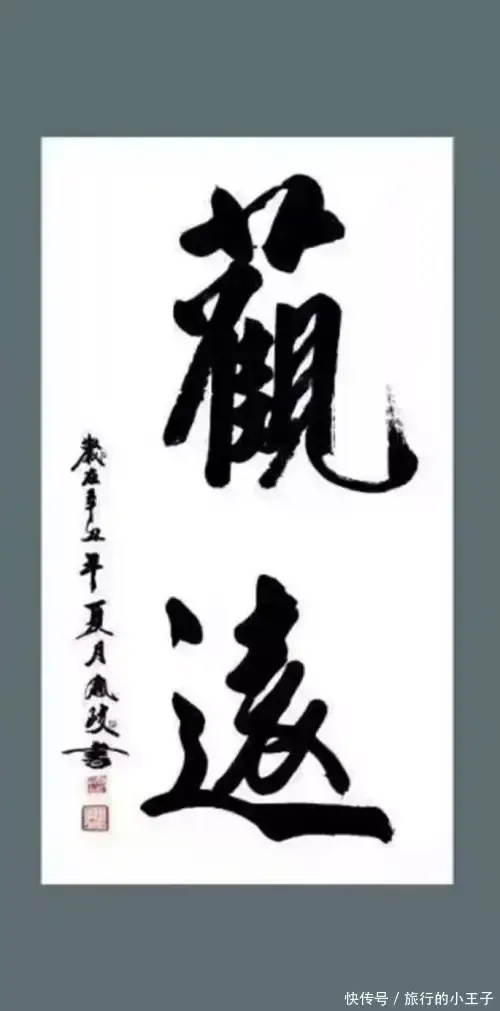 觀遠
歲在辛丑年夏月鳳書
快传号 / 旅行的小王子